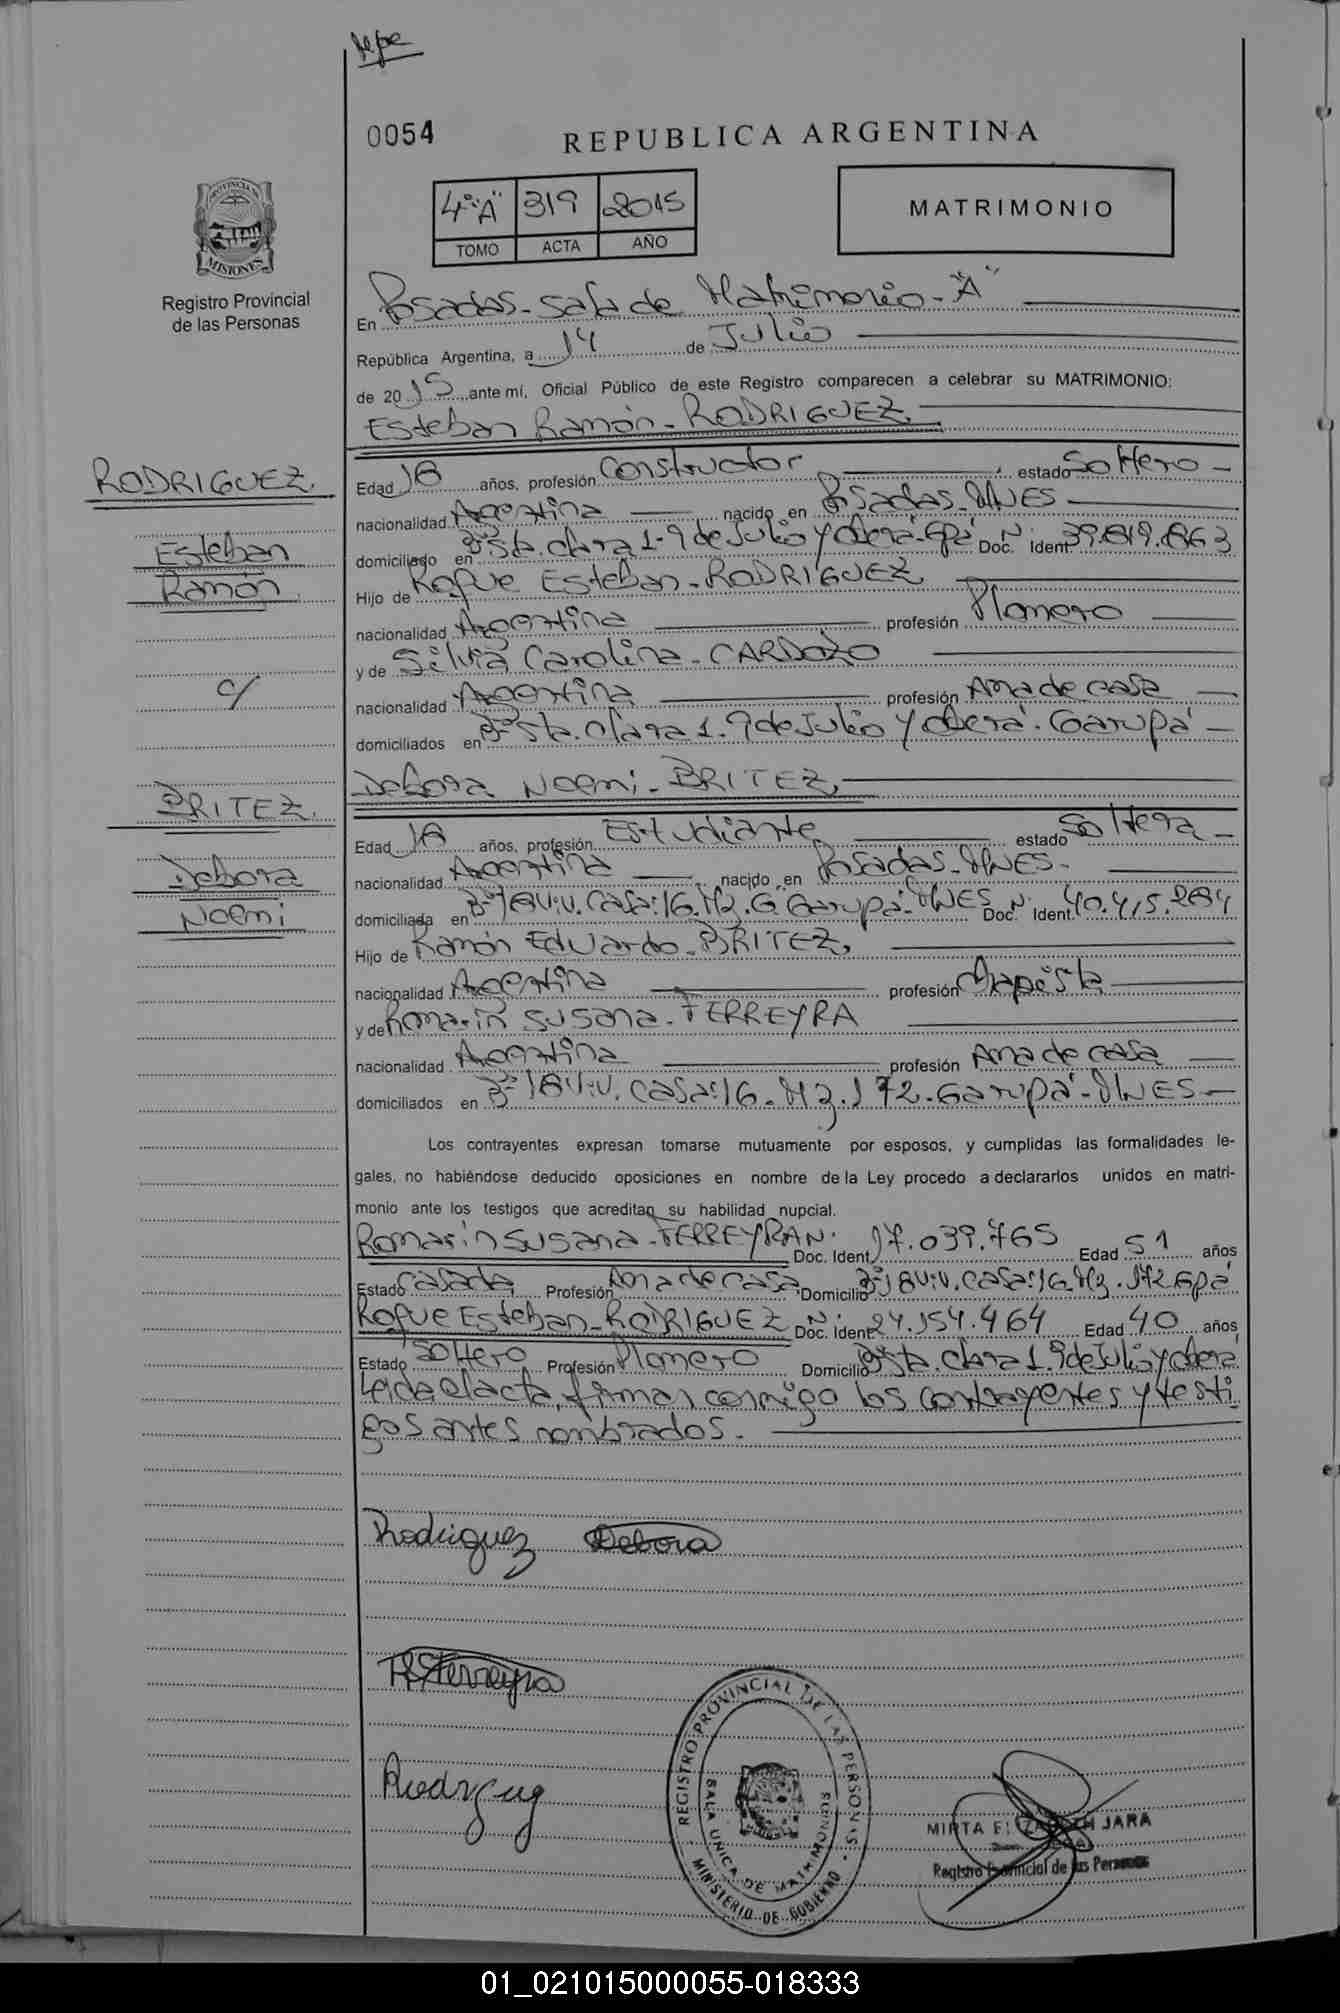 repe
0054
REPUBLICA ARGENTINA
4º"A" 319 2015
TOMO ACTA AÑO
MATRIMONIO
PROVINCIA DE MISIONES
Registro Provincial
de las Personas
En Posadas - sala de Matrimonio - "A"
República Argentina, a 14 de Julio
de 2015 ante mí, Oficial Público de este Registro comparecen a celebrar su MATRIMONIO:
Esteban Ramón - RODRIGUEZ
RODRIGUEZ
Esteban
Ramón
c/
BRITEZ
Debora
Noemi
Edad 18 años, profesión Constructor estado Soltero -
nacionalidad Argentina nacido en Posadas - MNES
domiciliado en Bº Sta. Clara 1 - 9 de Julio y Oberá - Gpá Doc. Nº Ident. 39.819.863
Hijo de Roque Esteban - RODRIGUEZ
nacionalidad Argentina profesión Plomero
y de Silvia Carolina - CARDOZO
nacionalidad Argentina profesión Ama de casa
domiciliados en Bº Sta. Clara 1. 9 de Julio y Oberá. Garupá -
Debora Noemi - BRITEZ
Edad 18 años, profesión Estudiante estado Soltera -
nacionalidad Argentina nacido en Posadas - MNES -
domiciliada en Bº 18 Viv. Casa: 16. Mz. G. Garupá - MNES Doc. Nº Ident. 40.415.284
Hijo de Ramón Eduardo - BRITEZ
nacionalidad Argentina profesión
y de Romarin Susana - FERREYRA
nacionalidad Argentina profesión Ama de casa
domiciliados en Bº 18 Viv. Casa: 16 - Mz. 172 - Garupá - MNES -
Los contrayentes expresan tomarse mutuamente por esposos, y cumplidas las formalidades le-
gales, no habiéndose deducido oposiciones en nombre de la Ley procedo a declararlos unidos en matri-
monio ante los testigos que acreditan su habilidad nupcial.
Romarin Susana - FERREYRA Nº Doc. Ident. 17.039.765 Edad 51 años
Estado Casada Profesión Ama de casa Domicilio Bº 18 Viv. Casa: 16. Mz. 172 Gpá
Roque Esteban - RODRIGUEZ Nº Doc. Ident. 24.154.464 Edad 40 años
Estado Soltero Profesión Plomero Domicilio Bº Sta. Clara 1. 9 de Julio y Oberá
Leida el acta, firman conmigo los contrayentes y testi
gos antes nombrados.
Rodriguez Debora
RSFerreyra
REGISTRO PROVINCIAL DE LAS PERSONAS
SALA UNICA DE MATRIMONIOS
MINISTERIO DE GOBIERNO
MIRTA ELIZABETH JARA
Registro Provincial de las Personas
01_021015000055-018333